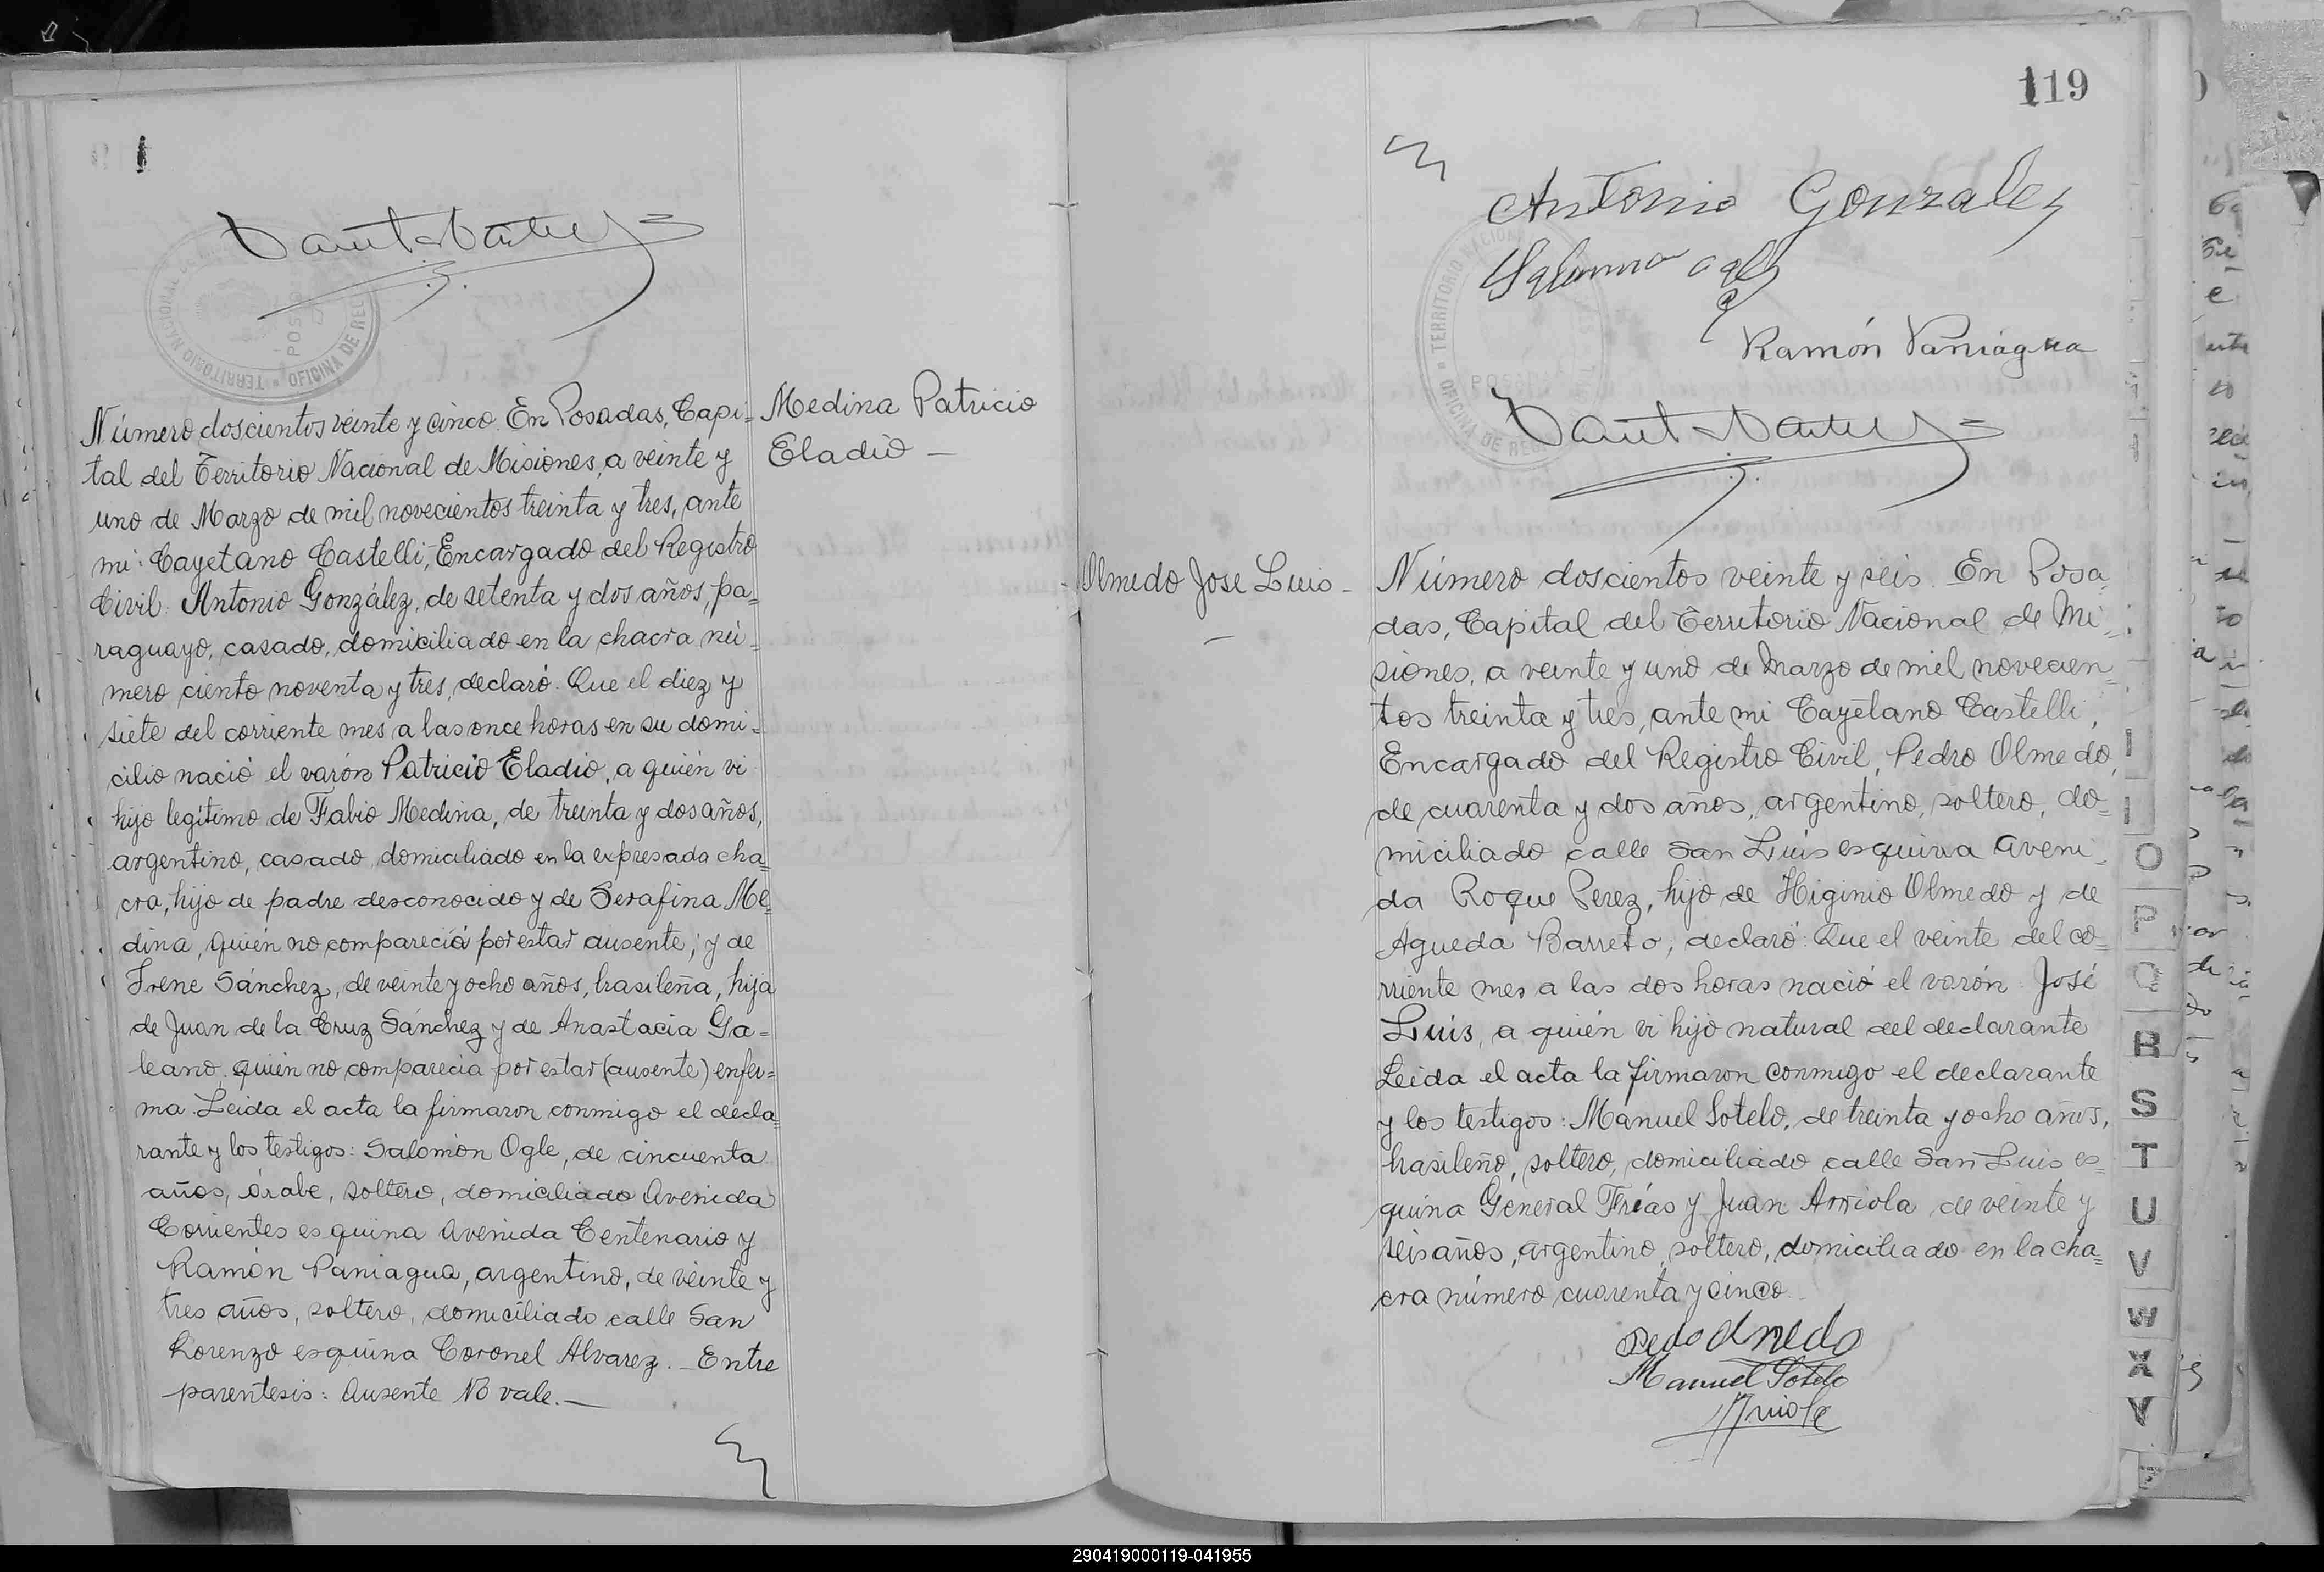 Número doscientos veinte y cinco. En Posadas, Capi=
tal del Territorio Nacional de Misiones, a veinte y
uno de Marzo de mil novecientos treinta y tres, ante
mi: Cayetano Castelli, Encargado del Registro
Civil: Antonio González, de setenta y dos años, pa=
raguayo, casado, domiciliado en la chacra nú=
mero ciento noventa y tres, declaró: Que el diez y
siete del corriente mes a las once horas en su domi=
cilio nació el varón Patricio Eladio, a quién vi
hijo legítimo de Fabio Medina, de treinta y dos años,
argentino, casado, domiciliado en la expresada cha=
cra, hijo de padre desconocido y de Serafina Me=
dina, quién no compareció por estar ausente; y de
Irene Sánchez, de veinte y ocho años, brasileña, hija
de Juan de la Cruz Sánchez y de Anastacia Ga=
leano, quién no comparecia por estar (ausente) enfer=
ma. Leida el acta la firmaron conmigo el decla=
rante y los testigos: Salomón Ogle, de cincuenta
años, árabe, soltero, domiciliado Avenida
Corrientes esquina Avenida Centenario y
Ramón Paniagua, argentino, de veinte y
tres años, soltero, domiciliado calle San
Lorenzo esquina Coronel Alvarez. _ Entre
parentesis: Ausente No vale. _
Medina Patricio
Eladio _
119
Antonio Gonzales
Ramón Paniagua
TERRITORIO NACIONAL
OFICINA DE REG
POSADAS
Olmedo Jose Luis _
Número doscientos veinte y seis. En Posa=
das, Capital del Territorio Nacional de Mi=
siones, a veinte y uno de Marzo de mil novecien=
tos treinta y tres, ante mi Cayetano Castelli,
Encargado del Registro Civil, Pedro Olmedo,
de cuarenta y dos años, argentino, soltero, do=
miciliado calle San Luis esquina Aveni=
da Roque Perez, hijo de Higinio Olmedo y de
Agueda Barreto, declaró: Que el veinte del co=
rriente mes a las dos horas nació el varón José
Luis, a quién vi hijo natural del declarante
Leida el acta la firmaron conmigo el declarante
y los testigos: Manuel Sotelo, de treinta y ocho años,
brasileño, soltero, domiciliado calle San Luis es=
quina General Frías y Juan Arriola de veinte y
seis años, argentino, soltero, domiciliado en la cha=
cra número cuarenta y cinco.
Pedo Olmedo
Manuel Sotelo
O
P
Q
R
S
T
U
V
W
X
Y
Z
290419000119-041955